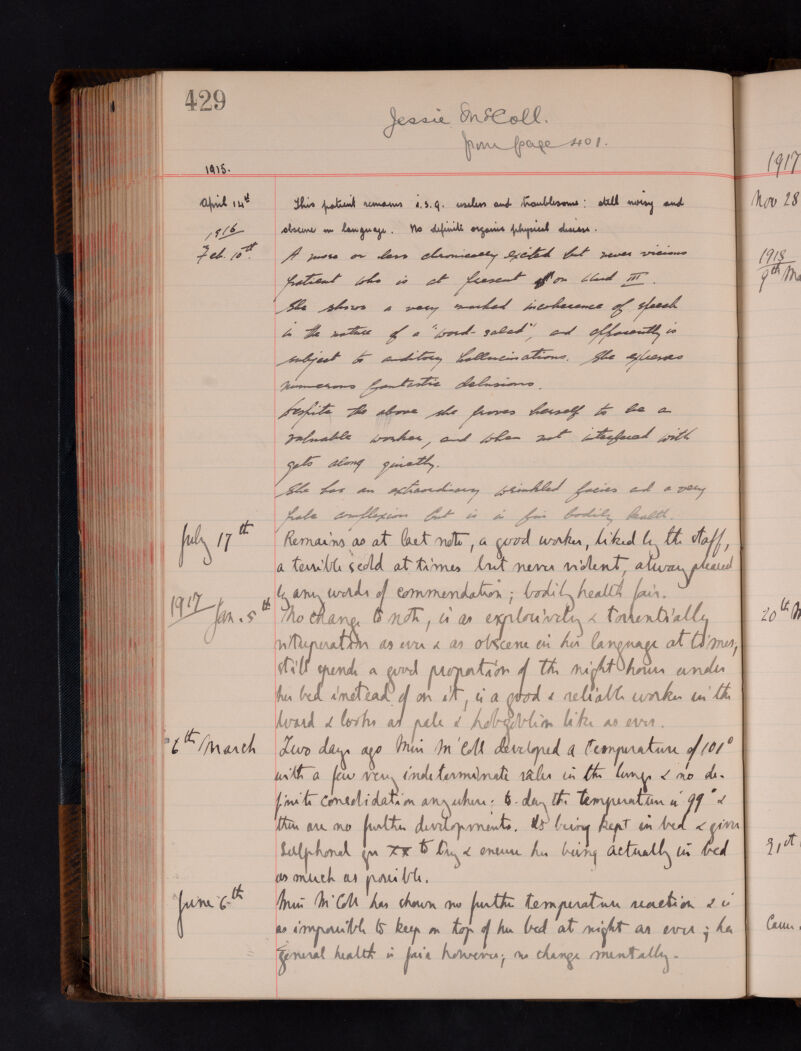 429
Jessie McColl.
from page 401.
1915.
April 14th This patient remains i.s.q. useless and troublesome: still noisy and
obscene in language. No definite organic physical disease.
1916
Feb. 10th. A more or less chronically excited but never vicious
patient who is at present on Ward III.
She shows a very marked incoherence of speech
in the nature of a "word-salad", and apparently is
subject to auditory hallucinations. She expresses
numerous fantastic delusions.
Despite the above she proves herself to be a
valuable worker, and when not interfered with
gets along quietly.
She has an extraordinary wrinkled facies and a very
pale complexion but is in fair bodily health.
July 17th Remains as at last note, a good worker, liked by the staff,
a terrible scold at times but never violent, always pleased
by any words of commendation; bodily health fair.
1917 Jan. 5th No change to note, is as explosively & torrentially
vituperative as ever & as obscene in her language at times,
still spends a good proportion of the night hours under
her bed instead of on it, is a good & reliable worker in the
ward & looks as pale & hobgoblin like as ever.
6th March Two days ago Miss McColl developed a temperature of 101°
with a few very indeterminate râles in the lungs & no de-
finite consolidation anywhere; to-day the temperature is 99° &
there are no further developments. Is being kept in bed & given
Sulphonal grs XX to try & ensure her being actually in bed
as much as possible.
June 6th Miss McColl has shown no further temperature reaction & is
as impossible to keep on top of her bed at night as ever; her
general health is fair however; no change mentally.
1917
Nov 28
1918
9th Ma
20th M
21st
Cann